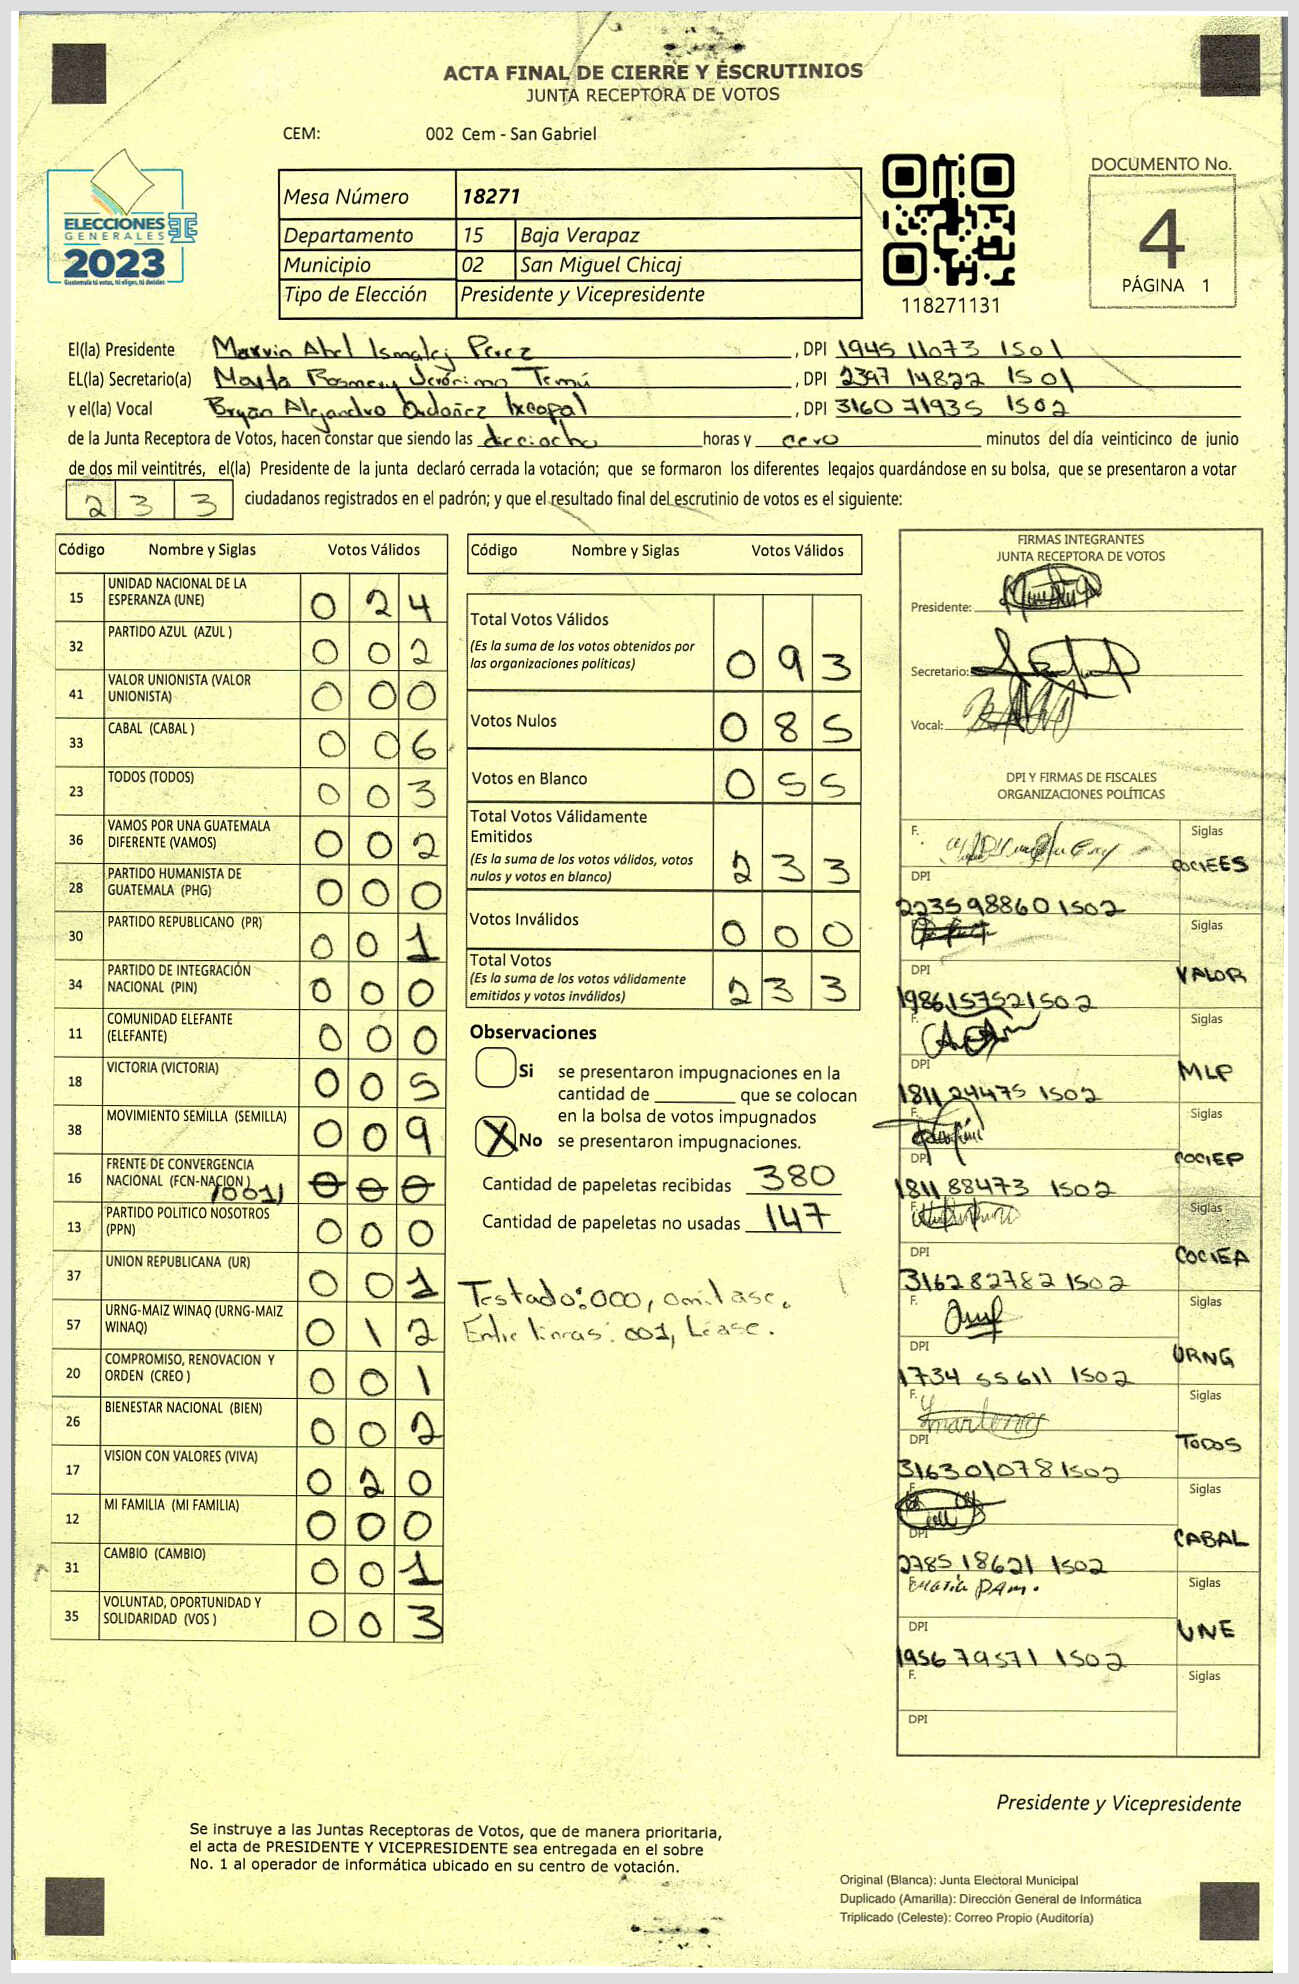 ACTA FINAL DE CIERRE Y ESCRUTINIOS
JUNTA RECEPTORA DE VOTOS
CEM: 002 Cem - San Gabriel
ELECCIONES
GENERALES
2023
Guatemala tú votas, tú eliges, tú decides
Mesa Número 18271
Departamento 15 Baja Verapaz
Municipio 02 San Miguel Chicaj
Tipo de Elección Presidente y Vicepresidente
118271131
DOCUMENTO No.
4
PÁGINA 1
El(la) Presidente Marvin Abel Ismalej Perez, DPI 1945 11073 1501
EL(la) Secretario(a) Marta Rosmery Jerónimo Temú, DPI 2397 14822 1501
y el(la) Vocal Bryan Alejandro Ordoñez Ixcopal, DPI 3160 71935 1502
de la Junta Receptora de Votos, hacen constar que siendo las dieciocho horas y cero minutos del día veinticinco de junio
de dos mil veintitrés, el(la) Presidente de la junta declaró cerrada la votación; que se formaron los diferentes legajos guardándose en su bolsa, que se presentaron a votar
2 3 3 ciudadanos registrados en el padrón; y que el resultado final del escrutinio de votos es el siguiente:
Código Nombre y Siglas Votos Válidos
15 UNIDAD NACIONAL DE LA ESPERANZA (UNE) 0 2 4
32 PARTIDO AZUL (AZUL ) 0 0 2
41 VALOR UNIONISTA (VALOR UNIONISTA) 0 0 0
33 CABAL (CABAL ) 0 0 6
23 TODOS (TODOS) 0 0 3
36 VAMOS POR UNA GUATEMALA DIFERENTE (VAMOS) 0 0 2
28 PARTIDO HUMANISTA DE GUATEMALA (PHG) 0 0 0
30 PARTIDO REPUBLICANO (PR) 0 0 1
34 PARTIDO DE INTEGRACIÓN NACIONAL (PIN) 0 0 0
11 COMUNIDAD ELEFANTE (ELEFANTE) 0 0 0
18 VICTORIA (VICTORIA) 0 0 5
38 MOVIMIENTO SEMILLA (SEMILLA) 0 0 9
16 FRENTE DE CONVERGENCIA NACIONAL (FCN-NACION ) /001/ 0 0 0
13 PARTIDO POLITICO NOSOTROS (PPN) 0 0 0
37 UNION REPUBLICANA (UR) 0 0 1
57 URNG-MAIZ WINAQ (URNG-MAIZ WINAQ) 0 1 2
20 COMPROMISO, RENOVACION Y ORDEN (CREO ) 0 0 1
26 BIENESTAR NACIONAL (BIEN) 0 0 2
17 VISION CON VALORES (VIVA) 0 2 0
12 MI FAMILIA (MI FAMILIA) 0 0 0
31 CAMBIO (CAMBIO) 0 0 1
35 VOLUNTAD, OPORTUNIDAD Y SOLIDARIDAD (VOS ) 0 0 3
Código Nombre y Siglas Votos Válidos
Total Votos Válidos
(Es la suma de los votos obtenidos por
las organizaciones políticas) 0 9 3
Votos Nulos 0 8 5
Votos en Blanco 0 5 5
Total Votos Válidamente
Emitidos
(Es la suma de los votos válidos, votos
nulos y votos en blanco) 2 3 3
Votos Inválidos 0 0 0
Total Votos
(Es la suma de los votos válidamente
emitidos y votos inválidos) 2 3 3
Observaciones
Si se presentaron impugnaciones en la
cantidad de ________ que se colocan
en la bolsa de votos impugnados
X No se presentaron impugnaciones.
Cantidad de papeletas recibidas 380
Cantidad de papeletas no usadas 147
Testado: 000, omitase.
Entre lineas: 001, Lease.
FIRMAS INTEGRANTES
JUNTA RECEPTORA DE VOTOS
Presidente:
Secretario:
Vocal:
DPI Y FIRMAS DE FISCALES
ORGANIZACIONES POLÍTICAS
F. Siglas
COCIEES
DPI
2235 98860 1502
Siglas
VALOR
DPI
1986 15752 1502
F. Siglas
MLP
DPI
1811 24475 1502
F. Siglas
COCIEP
DPI
1811 88473 1502
F. Siglas
COCIEA
DPI
3162 82782 1502
F. Siglas
URNG
DPI
1734 55611 1502
F. Siglas
TODOS
DPI
3163 01078 1502
F. Siglas
CABAL
DPI
2785 18621 1502
F. Siglas
UNE
DPI
1956 79571 1502
F. Siglas
DPI
Presidente y Vicepresidente
Se instruye a las Juntas Receptoras de Votos, que de manera prioritaria,
el acta de PRESIDENTE Y VICEPRESIDENTE sea entregada en el sobre
No. 1 al operador de informática ubicado en su centro de votación.
Original (Blanca): Junta Electoral Municipal
Duplicado (Amarilla): Dirección General de Informática
Triplicado (Celeste): Correo Propio (Auditoría)